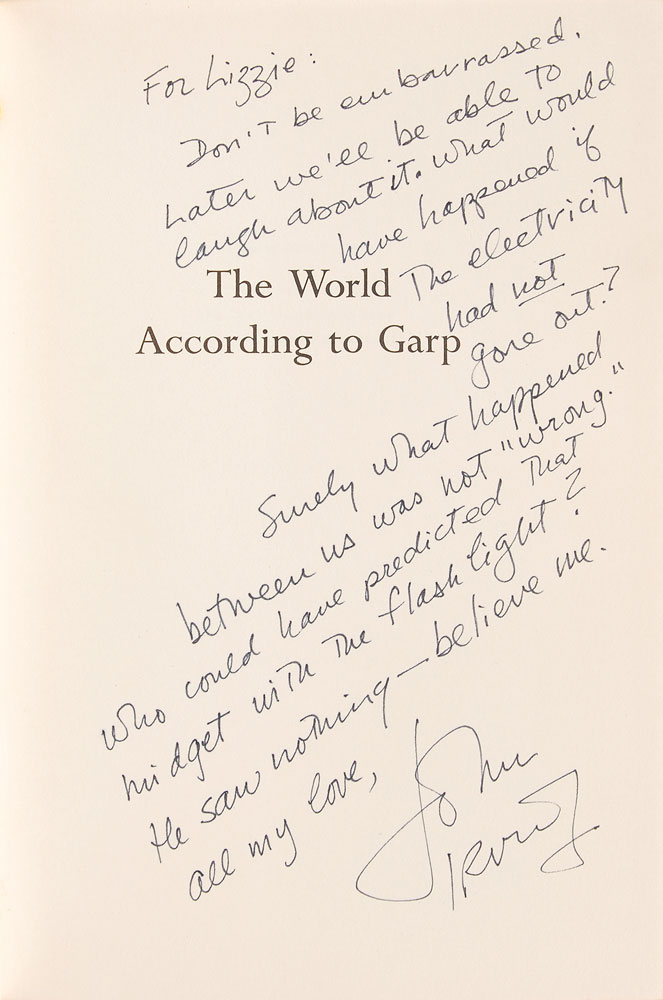 For Lizzie:
Don't be embarrassed.
Later we'll be able to
laugh about it. What would
have happened if
The World
The electricity
had not
According to Garp
gone out?
Surely what happened
between us was not "wrong."
who could have predicted that
midget with the flashlight?
He saw nothing—believe me.
all my love,
John
Irving